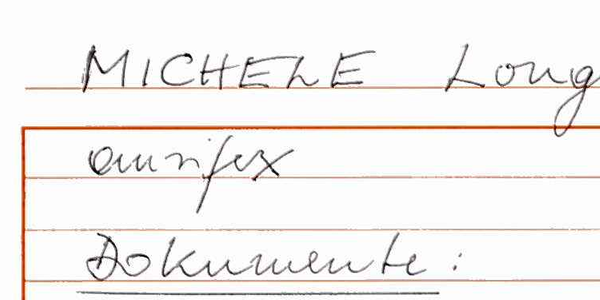 MICHELE Long
aurifex
Dokumente: